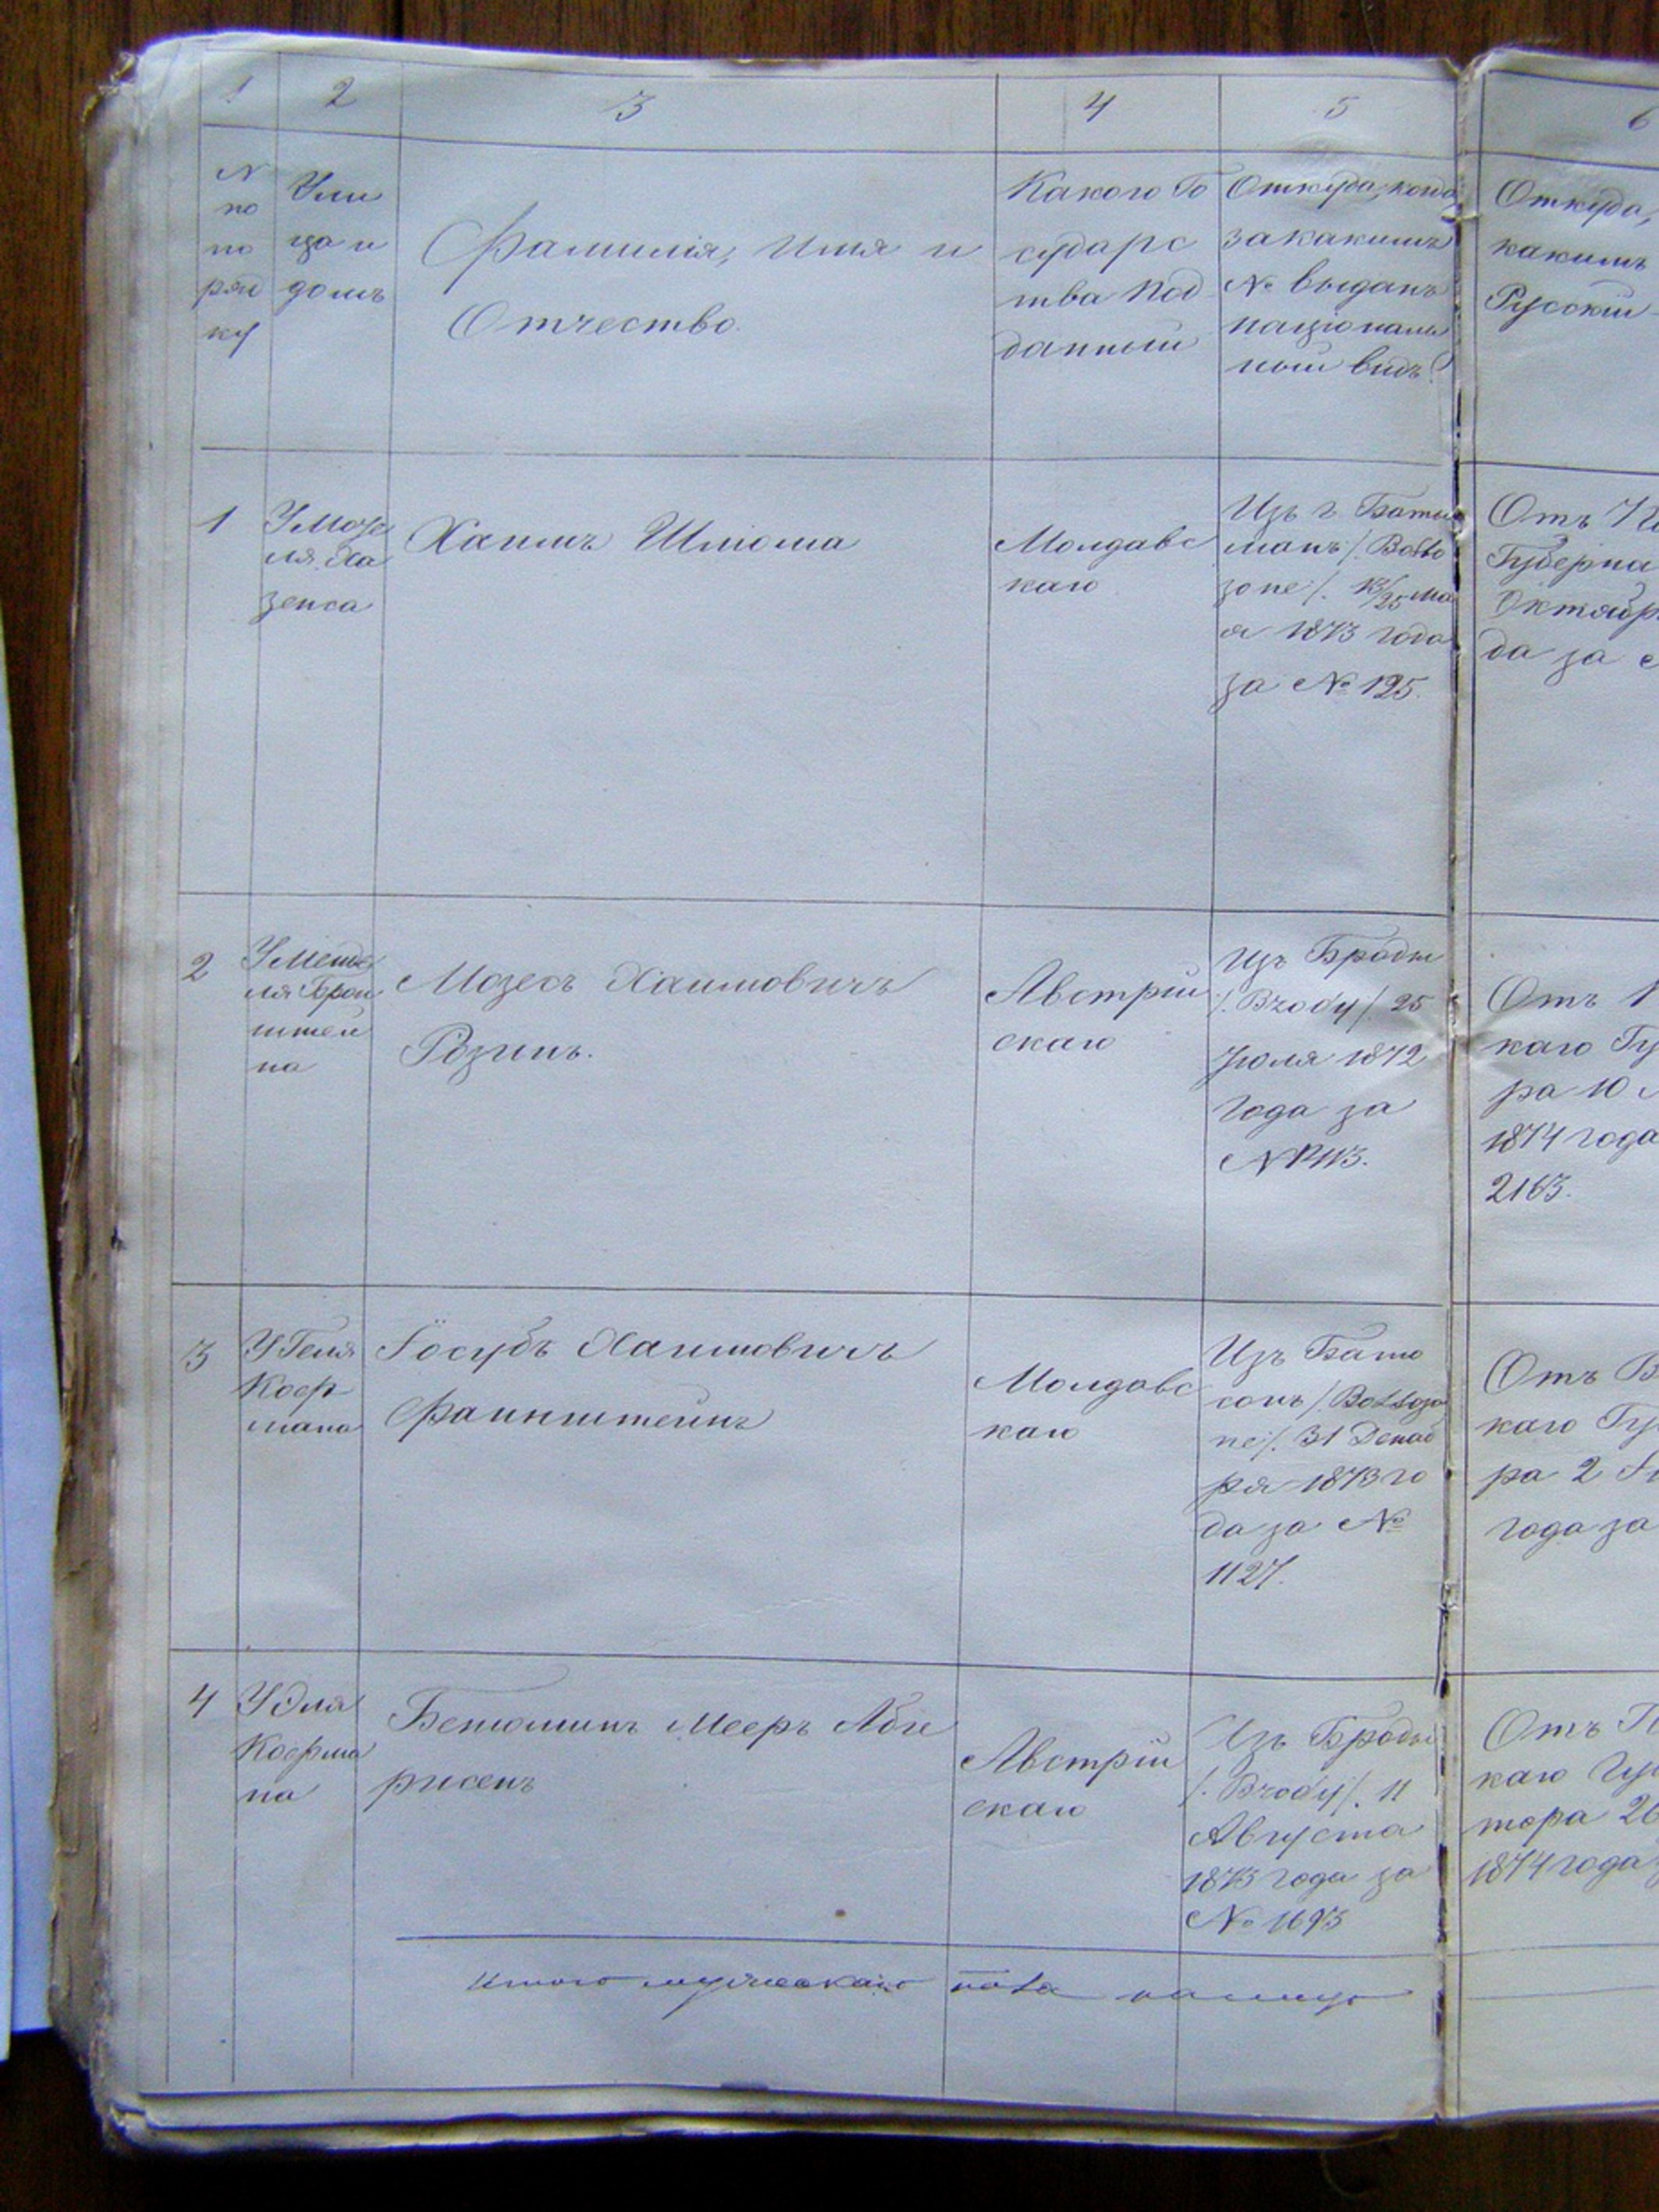 1 2 3 4 5 6
N
по
по
ряд
ку
Ули
ца и
домъ
Фамилія, Имя и
Отчество.
Какого Го
сударс
тва Под
данный
Откуда, когда,
за какимъ
№ выданъ
націоналъ
ный видъ?
Откуда,
какимъ
Русскій
1
У Мозе
ля Ха
зенса
Хаимъ Шлиома
Молдавс
каго
Изъ г Бато
шанъ /: Botto
зоне /. 13/25 Ма
я 1873 года
за № 125.
Отъ
Губерна
Октябр
да за
2
У Менде
ля Брон
штей
на
Мозесъ Хаимовичъ
Розинъ.
Австрій
скаго
Изъ Броды
/: Brody /. 25
Іюля 1872
года за
Отъ
каго Гу
ра 10
1874 года
2163.
3
У Геля
Коер
мана
Іосубъ Хаимовичъ
Фаинштейнъ
Молдавс
каго
Изъ Бато
сонъ /: Botoza
не /. 31 Декаб
ря 1873 го
да за №
1127.
Отъ В
каго Гу
ра 2
года за
4
У Эля
Коерма
на
Бенюминъ Мееръ Абге
рисенъ
Австрій
скаго
Изъ Броды
/: Brody /. 11
Августа
1873 года за
№ 1693
Отъ П
каго Гу
тора 26
1874 года
Итого мужескаго пола